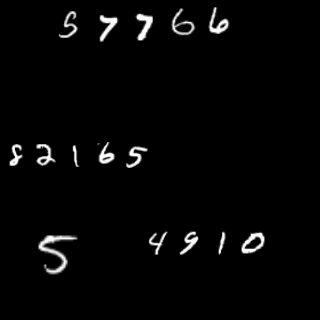 57766
82165
5 4910